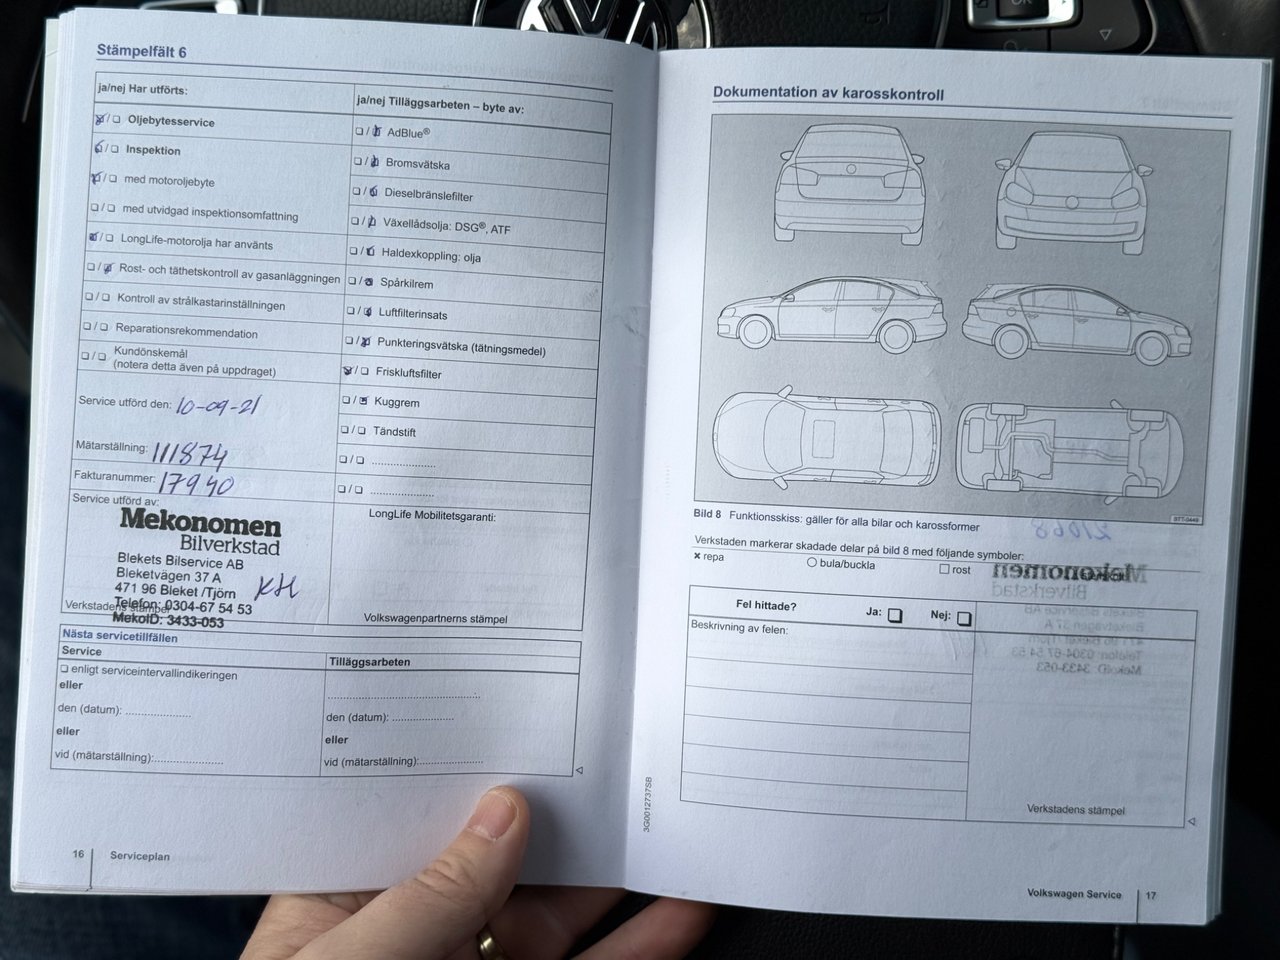 Stämpelfält 6
ja/nej Har utförts:
❏/❏ Oljebytesservice
❏/❏ Inspektion
❏/❏ med motoroljebyte
❏/❏ med utvidgad inspektionsomfattning
❏/❏ LongLife-motorolja har använts
❏/❏ Rost- och täthetskontroll av gasanläggningen
❏/❏ Kontroll av strålkastarinställningen
❏/❏ Reparationsrekommendation
❏/❏ Kundönskemål
(notera detta även på uppdraget)
Service utförd den: 10-09-21
Mätarställning: 111874
Fakturanummer: 17940
Service utförd av:
Mekonomen
Bilverkstad
Blekets Bilservice AB
Bleketvägen 37 A
471 96 Bleket /Tjörn KH
Telefon: 0304-67 54 53
Verkstadens stämpel
MekoID: 3433-053
ja/nej Tilläggsarbeten – byte av:
❏/❏ AdBlue®
❏/❏ Bromsvätska
❏/❏ Dieselbränslefilter
❏/❏ Växellådsolja: DSG®, ATF
❏/❏ Haldexkoppling: olja
❏/❏ Spårkilrem
❏/❏ Luftfilterinsats
❏/❏ Punkteringsvätska (tätningsmedel)
❏/❏ Friskluftsfilter
❏/❏ Kuggrem
❏/❏ Tändstift
❏/❏ ....................
❏/❏ ....................
LongLife Mobilitetsgaranti:
Volkswagenpartnerns stämpel
Nästa servicetillfällen
Service
❏ enligt serviceintervallindikeringen
eller
den (datum): ....................
eller
vid (mätarställning):....................
Tilläggsarbeten
..............................................
den (datum): ...................
eller
vid (mätarställning):...................
16 Serviceplan
Dokumentation av karosskontroll
BTT-0449
Bild 8 Funktionsskiss: gäller för alla bilar och karossformer
Verkstaden markerar skadade delar på bild 8 med följande symboler:
× repa
○ bula/buckla
□ rost
Fel hittade? Ja: ❏ Nej: ❏
Beskrivning av felen:
Verkstadens stämpel
3G0012737SB
Volkswagen Service 17